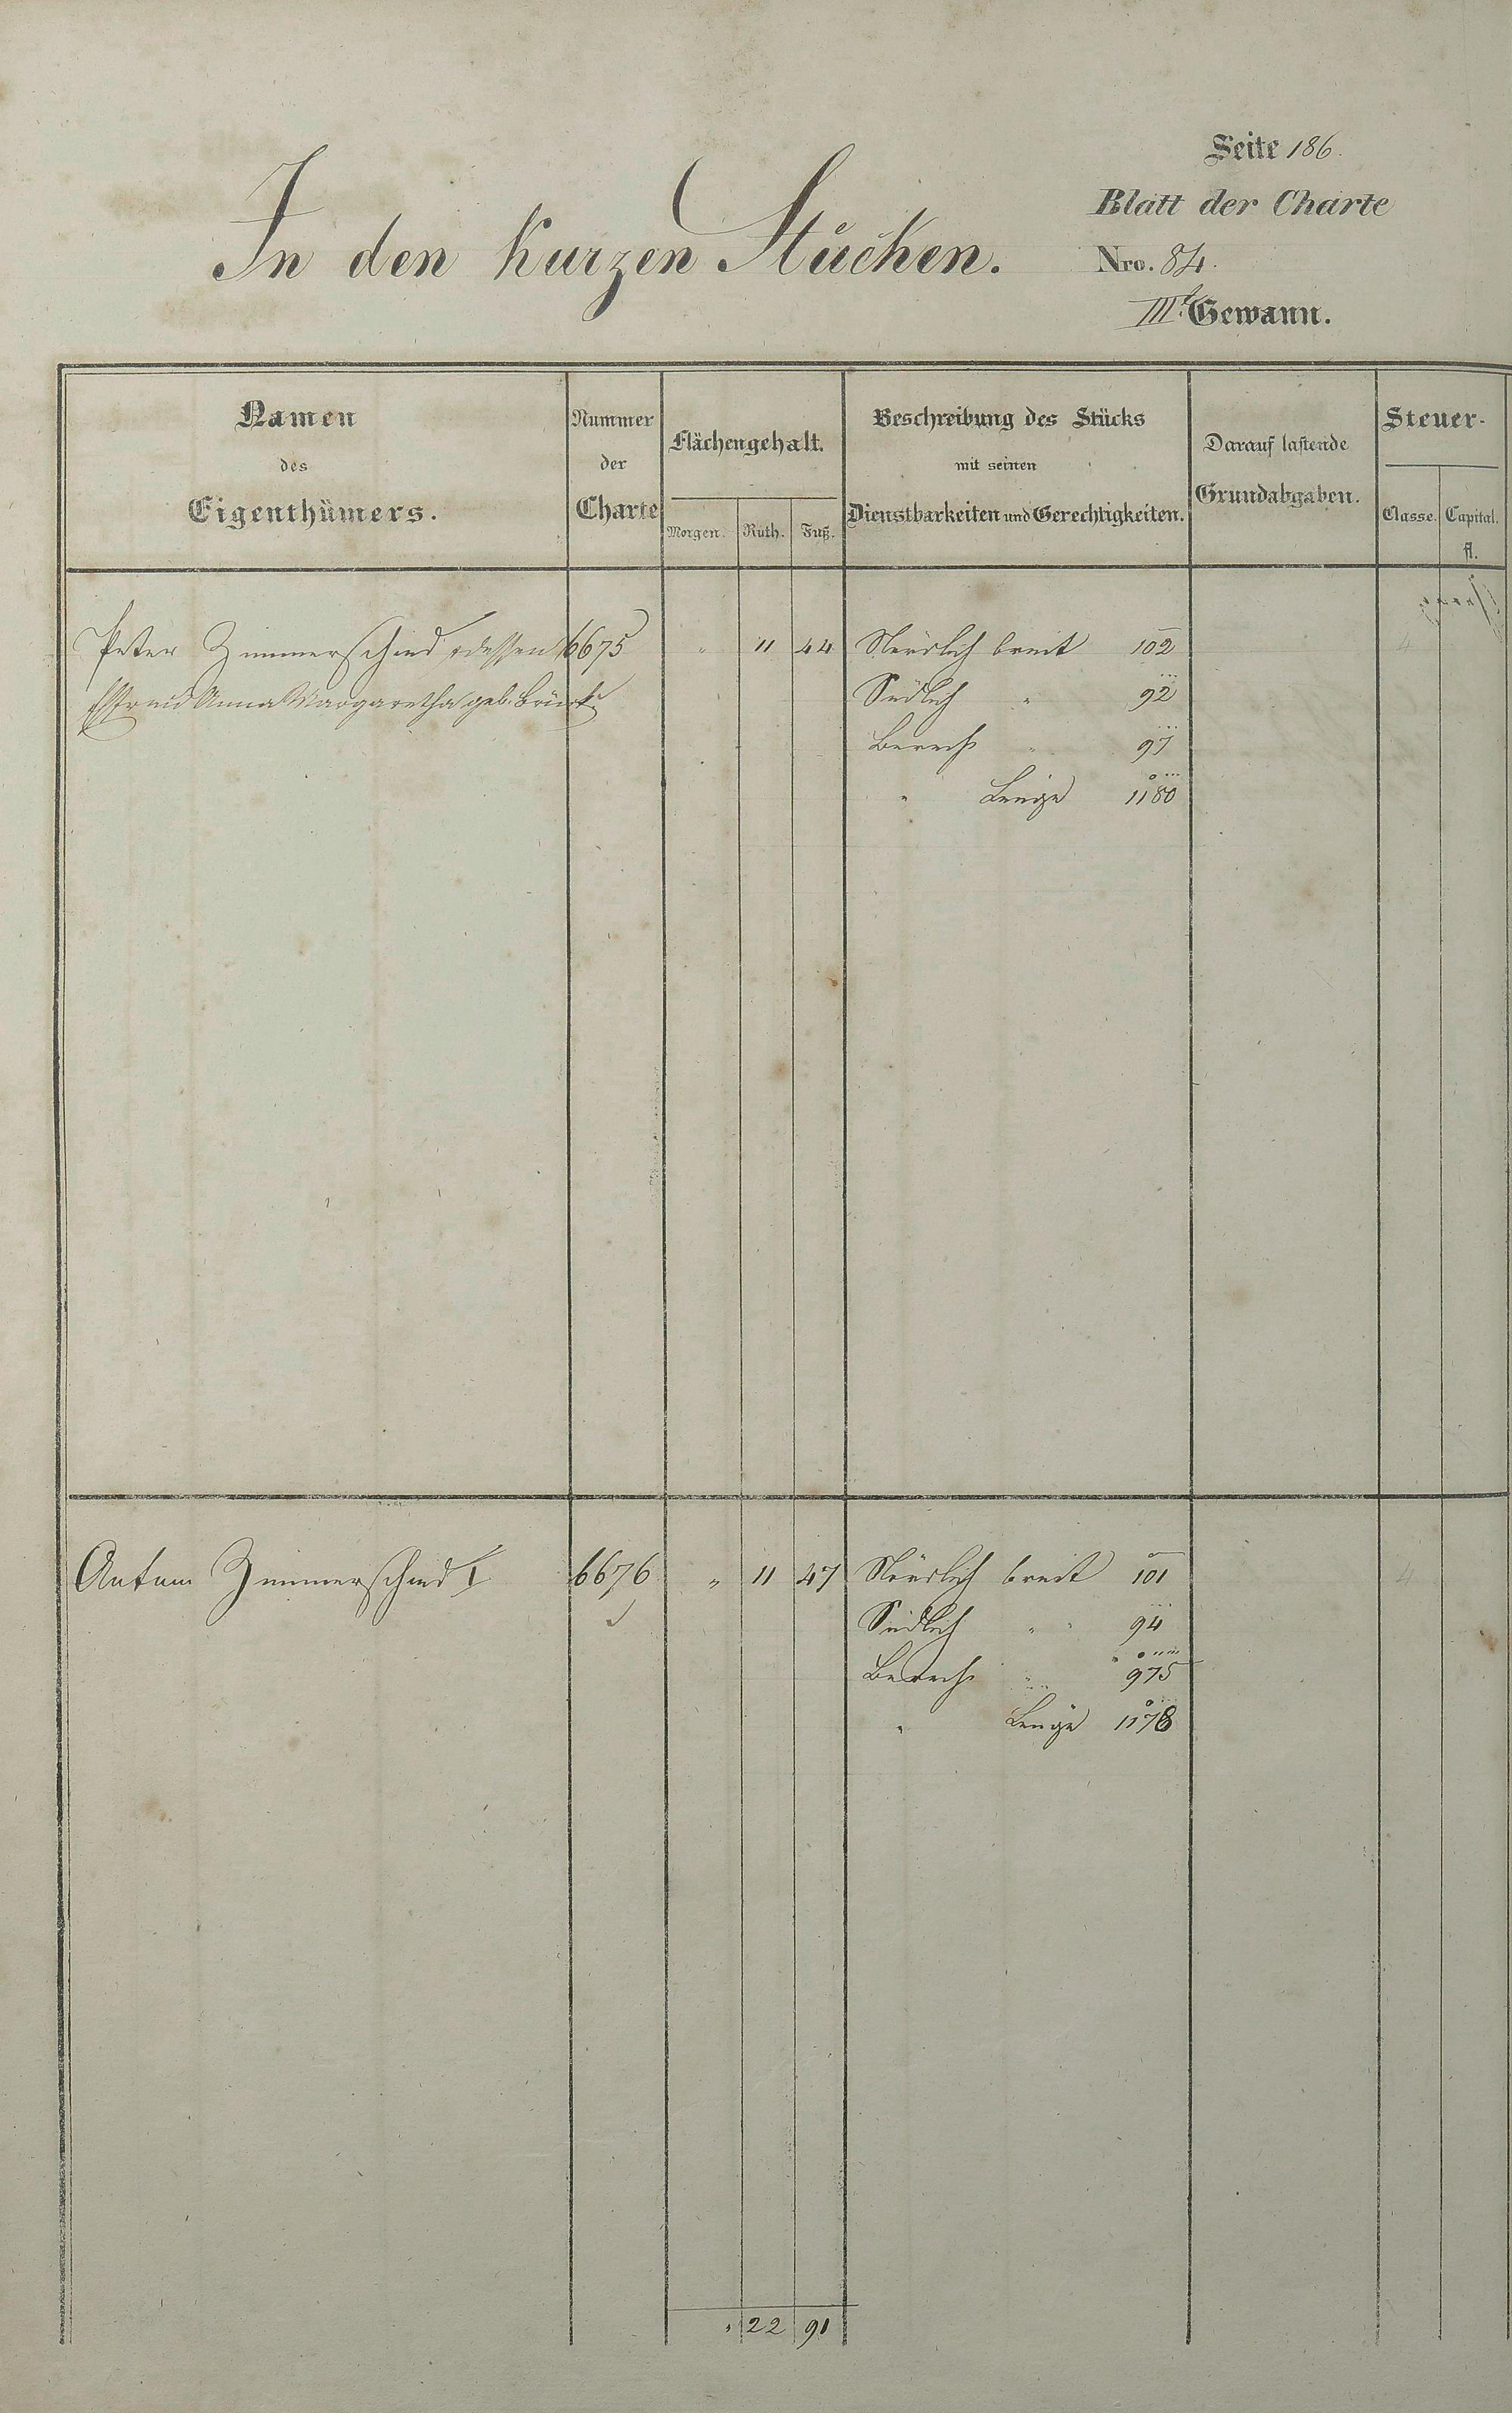 Seite 186.
Blatt der Charte
In den Kurzen Stücken.
Nro. 84.
III. Gewann.
Namen des Eigenthümers.
Nummer der Charte
Flächengehalt.
Morgen. Ruth. Fuß.
Beschreibung des Stücks
mit seinen
Dienstbarkeiten und Gerechtigkeiten.
Darauf lastende
Grundabgaben.
Steuer-
Classe. Capital.
fl.
Peter Zimmerschied dessen 6675 " 11 44 Nördlich breit 102 4
Anna Margaretha geb.
Südlich " 92
Berech " 97
" Länge 1180
Anton Zimmerschied I 6676 " 11 47 Nördlich breit 101 4
Südlich " 94
Berech " 975
" Länge 1178
" 22 91